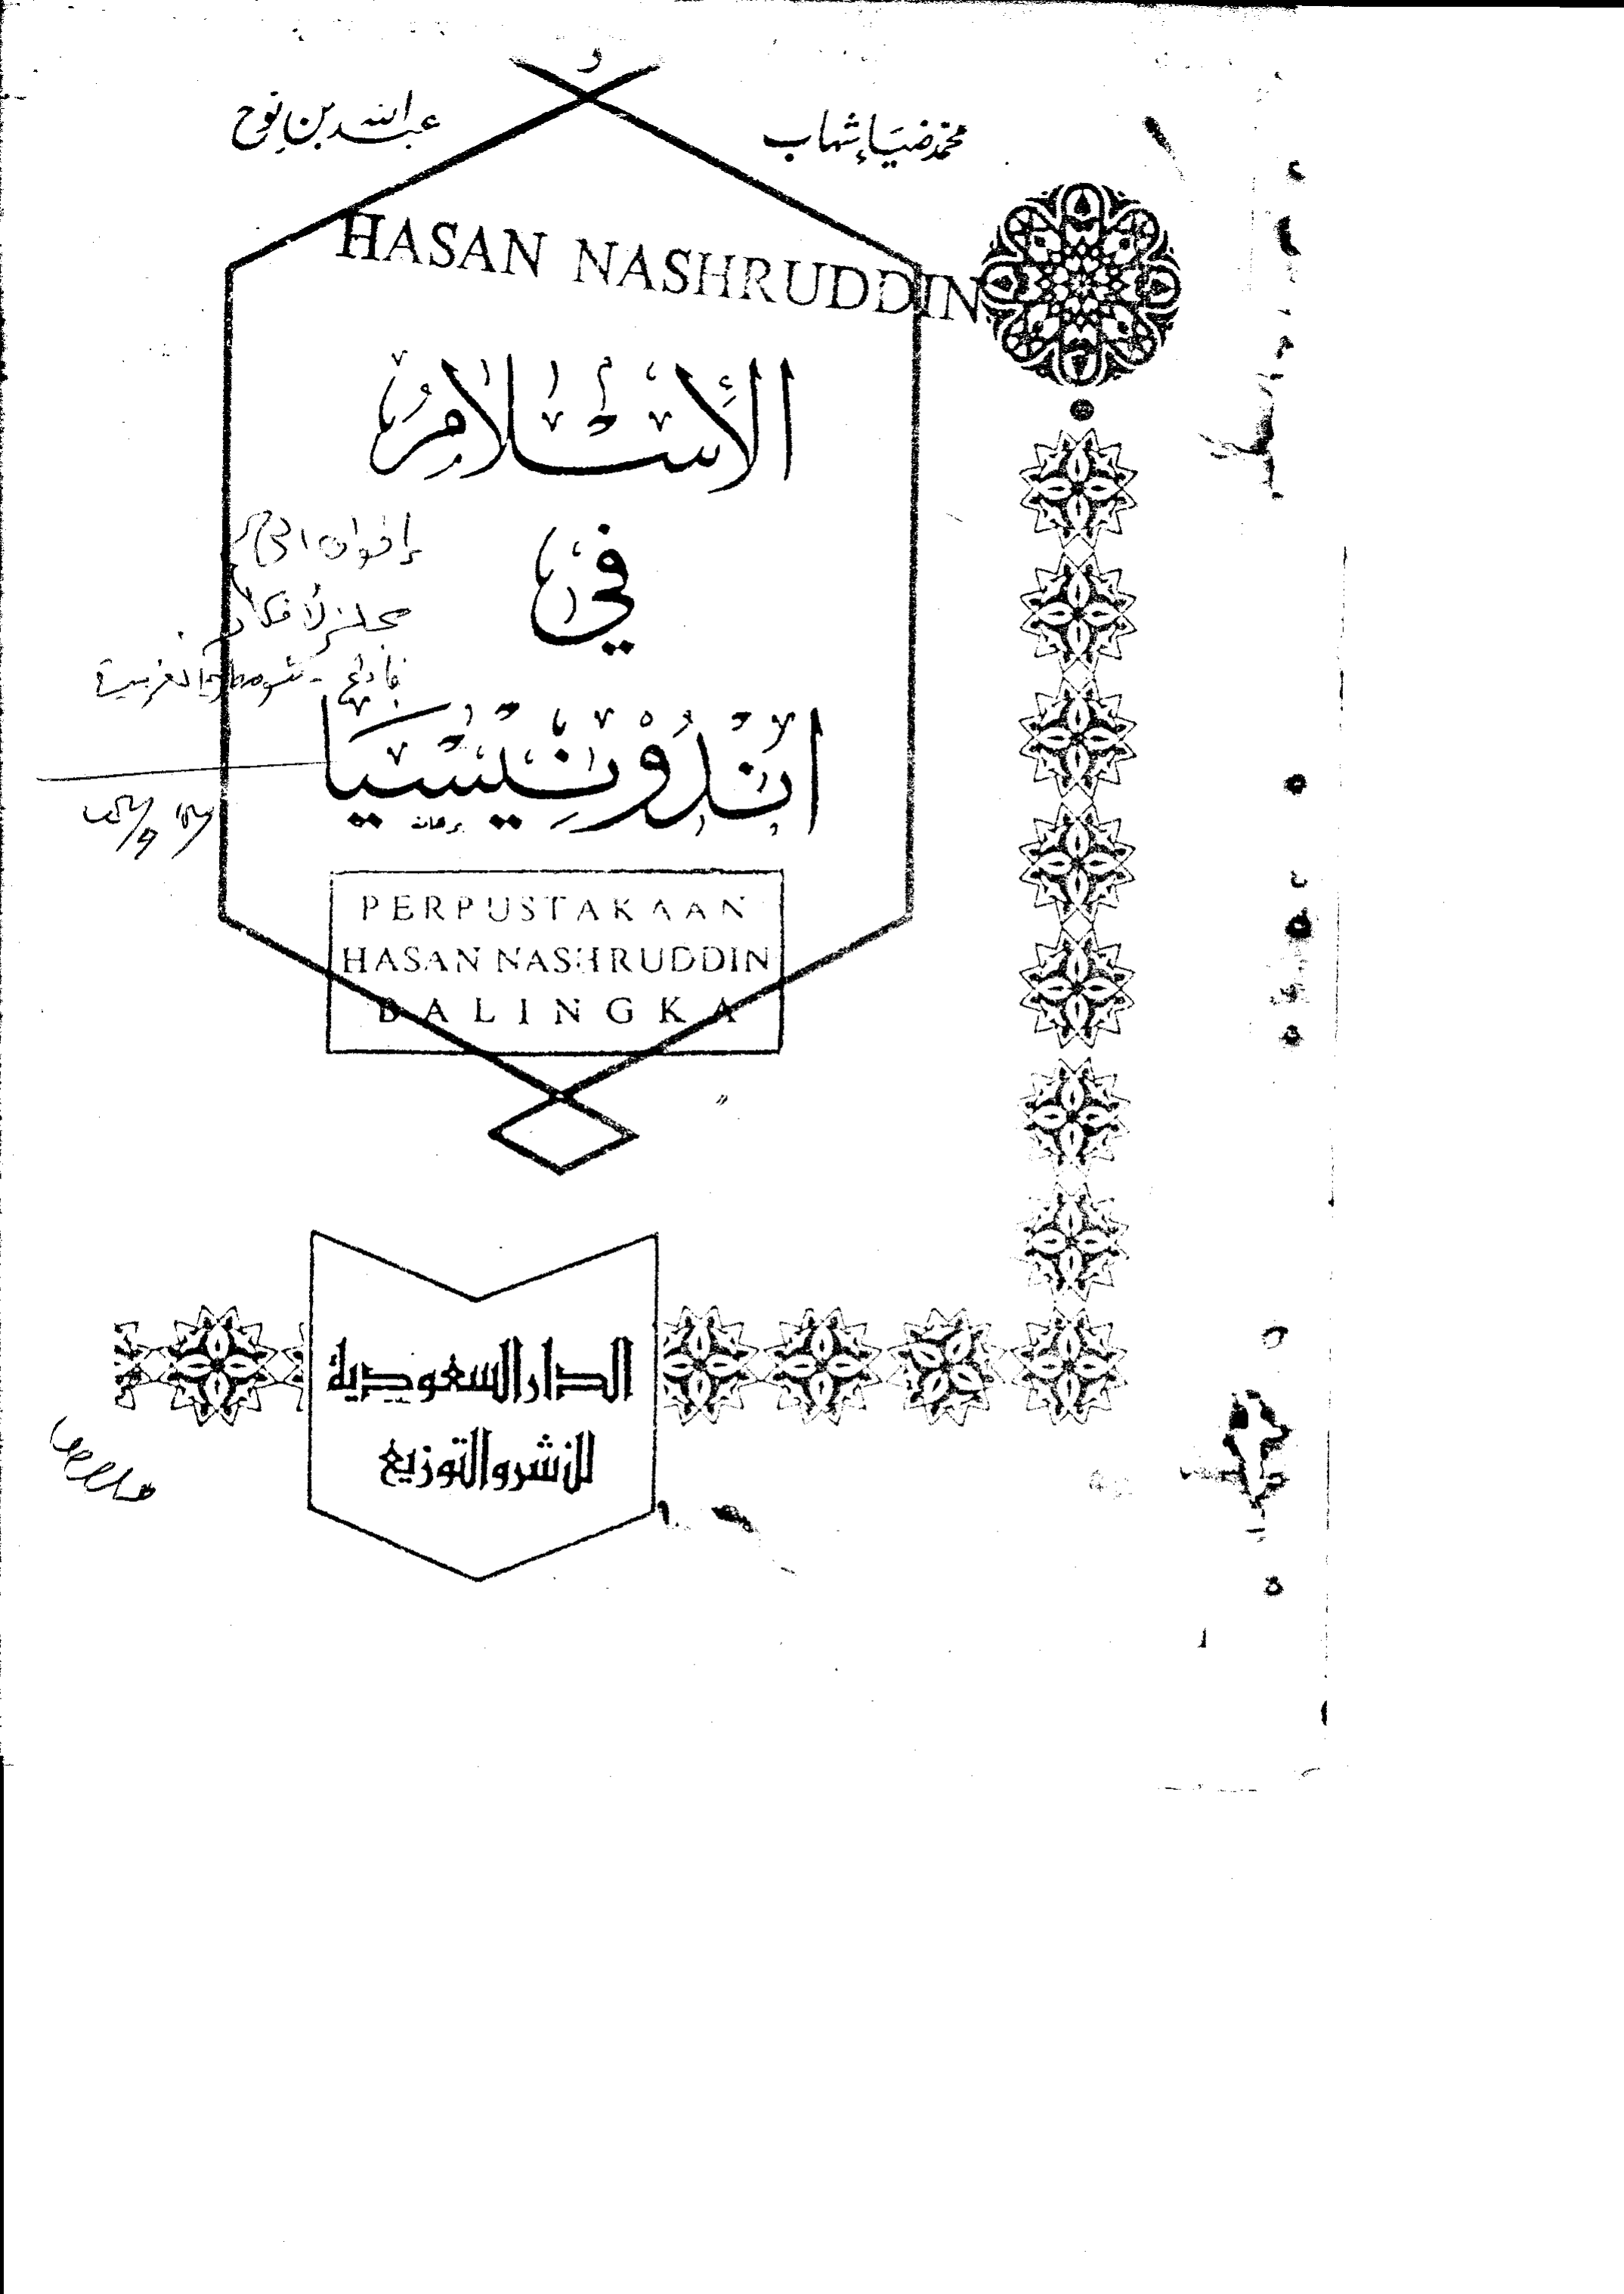 محمد ضياء شهاب
و
عبد الله بن نوح
HASAN NASHRUDDIN
الإسلام
في
اندونيسيا
PERPUSTAKAAN
HASAN NASHRUDDIN
BALINGKA
الدار السعودية
للنشر والتوزيع